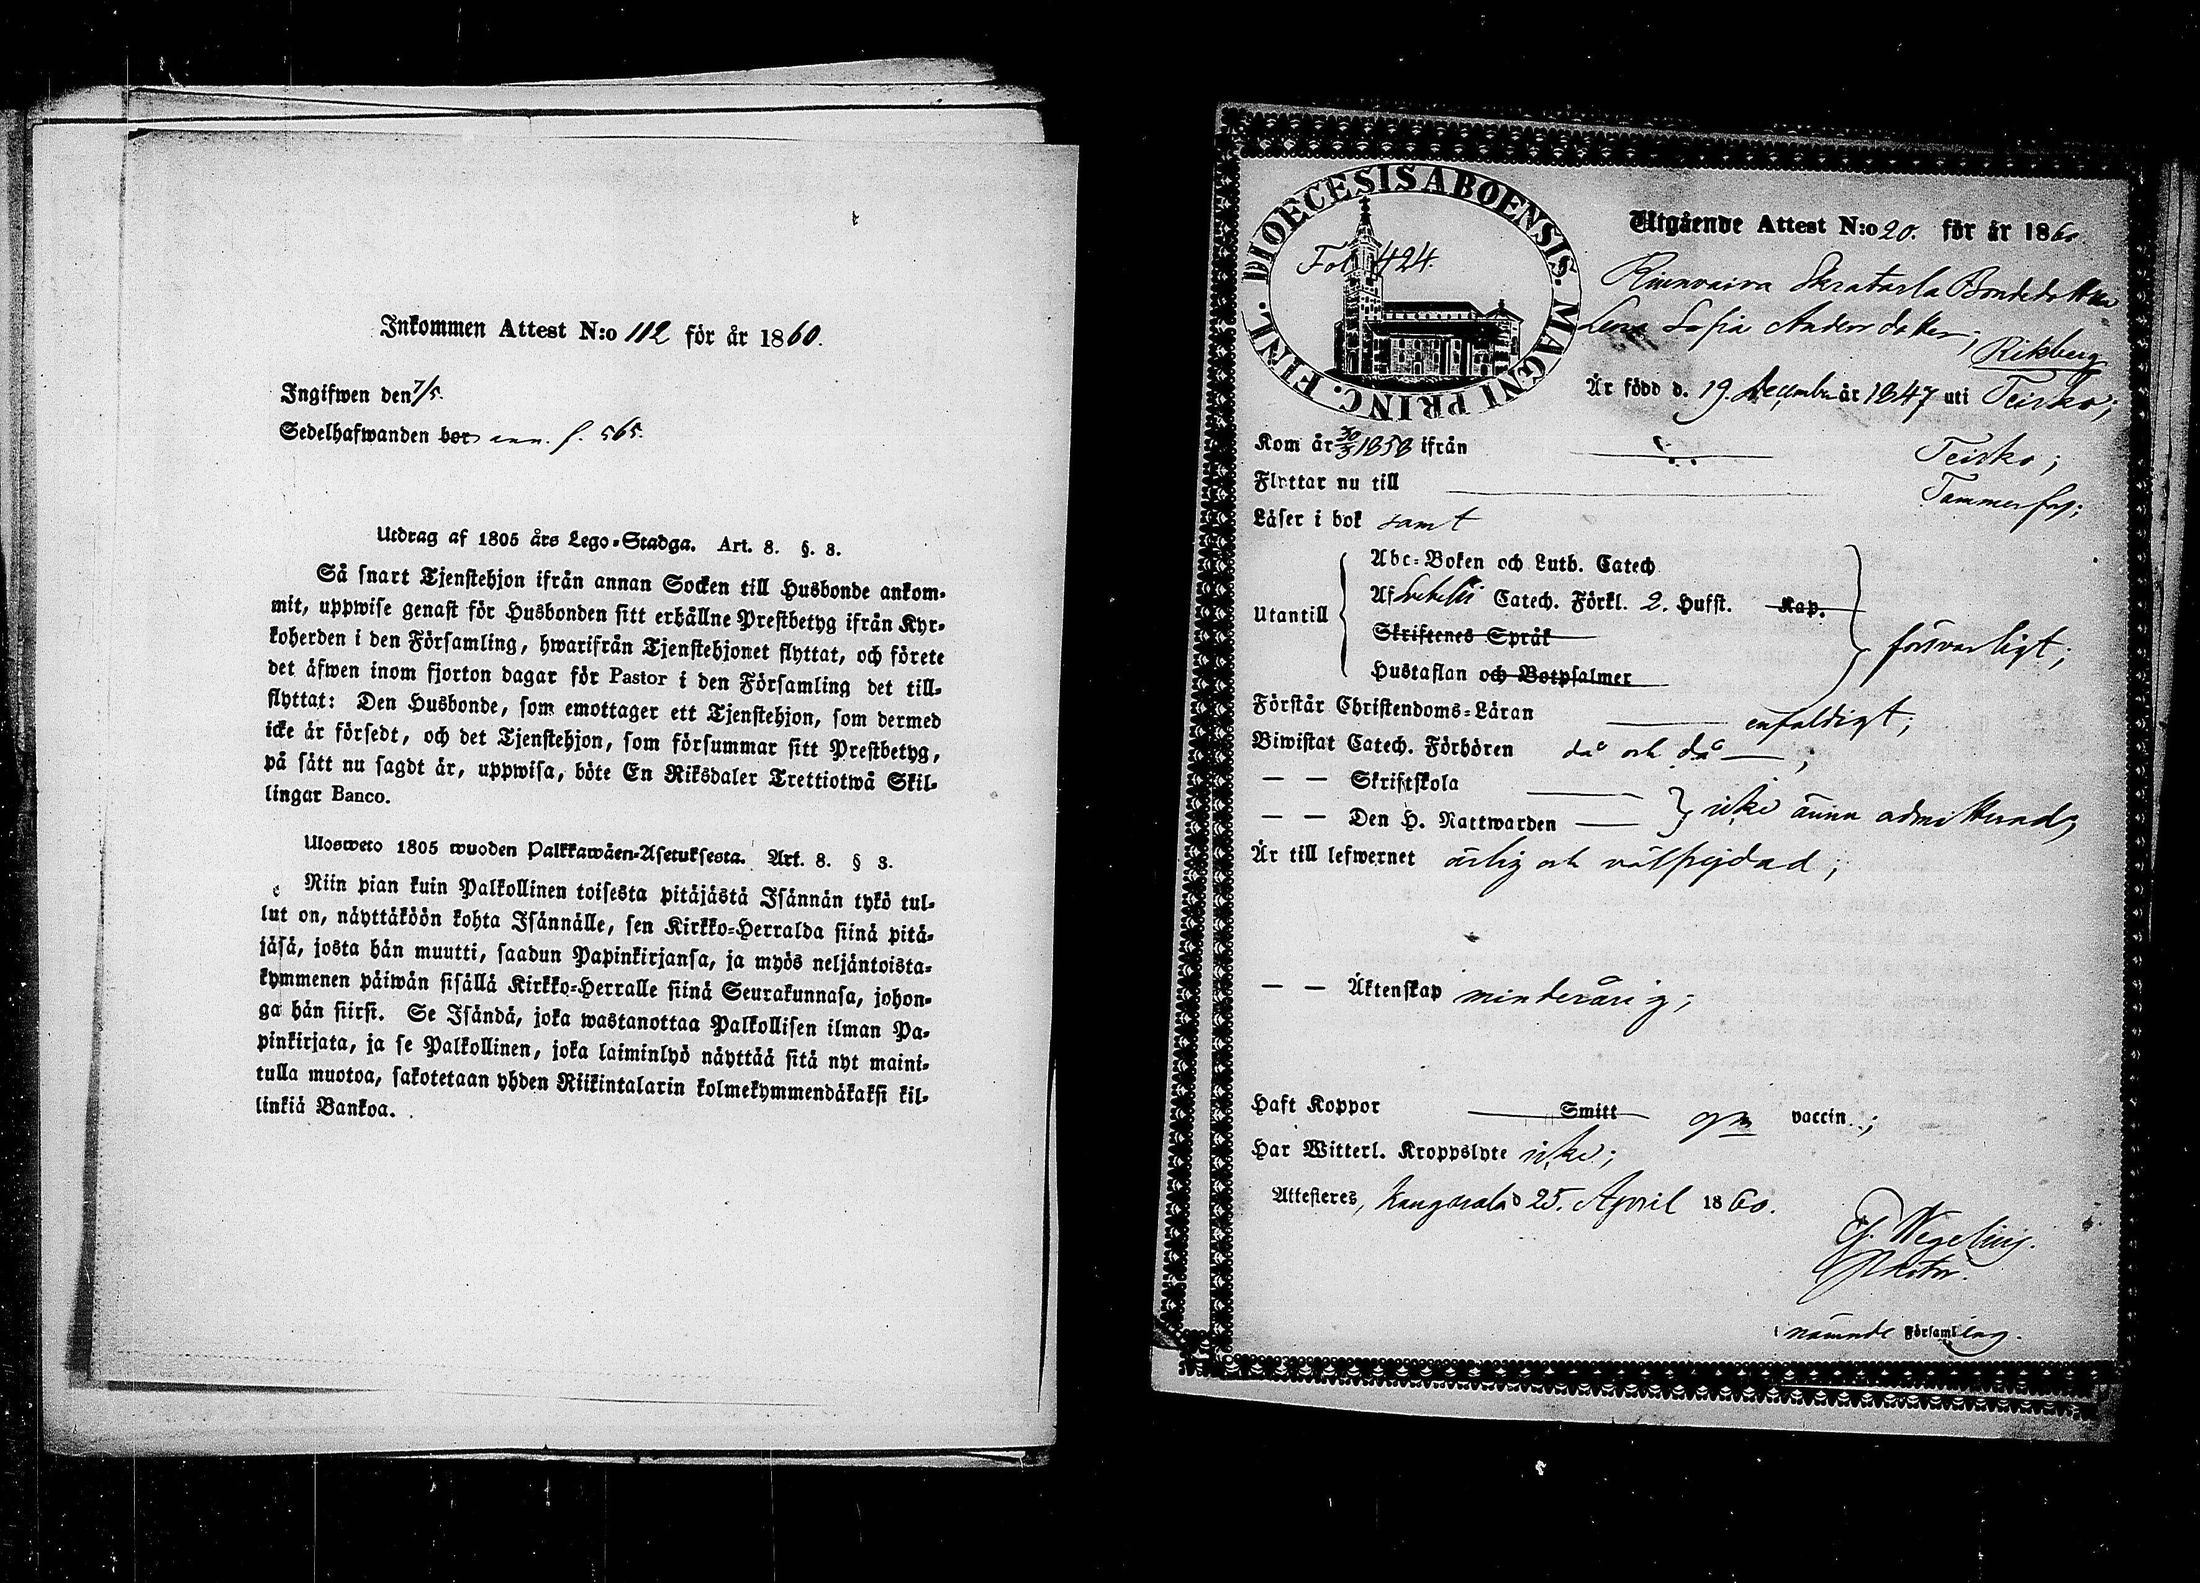 Inkommen Attest N:o 112 för år 1860.
Ingifwen den 7/5.
Sedelhafwanden bor ann. f. 565.
Utdrag af 1805 års Lego-Stadga. Art. 8. §. 8.
Så snart Tjenstehjon ifrån annan Socken till Husbonde ankom-
mit, uppwise genast för Husbonden sitt erhållne Prestbetyg ifrån Kyr-
koherden i den Församling, hwarifrån Tjenstehjonet flyttat, och förete
det äfwen inom fjorton dagar för Pastor i den Församling det till-
flyttat: Den Husbonde, som emottager ett Tjenstehjon, som dermed
icke är försedt, och det Tjenstehjon, som försummar sitt Prestbetyg,
på sätt nu sagdt är, uppwisa, böte En Riksdaler Trettiotwå Skil-
lingar Banco.
Ulosweto 1805 wuoden Palkkawäen-Asetuksesta. Art. 8. § 8.
Niin pian kuin Palkollinen toisesta pitäjästä Isännän tykö tul-
lut on, näyttäköön kohta Isännälle, sen Kirkko-Herralda siinä pitä-
jäsä, josta hän muutti, saadun Papinkirjansa, ja myös neljäntoista-
kymmenen päiwän sisällä Kirkko-Herralle siinä Seurakunnasa, johon-
ga hän siirsi. Se Isändä, joka wastanottaa Palkollisen ilman Pa-
pinkirjata, ja se Palkollinen, joka laiminlyö näyttää sitä nyt maini-
tulla muotoa, sakotetaan yhden Riikintalarin kolmekymmendäkaksi kil-
linkiä Bankoa.
DIOECESIS ABOENSIS. MAGNI PRINC. FINL.
Fol 424.
Utgående Attest N:o 20. för år 1860.
Skratarla Bondedotter
Lena Sofia Andersdotter; Riksberg
Är född d. 19. December år 1847 uti Teisko;
Kom år 30/3 1858 ifrån Teisko;
Flyttar nu till Tammerfors;
Läser i bok samt
Utantill
Abc-Boken och Luth. Catech.
Af Svebelii Catech. Förkl. 2. Hufst. Kap.
Skriftenes Språk
Hustaflan och Botpsalmer
försvarligt;
Förstår Christendoms-Läran enfaldigt;
Biwistat Catech. Förhören då och då;
— — Skriftskola
— — Den H. Nattwarden
icke ännu admitterad;
Är till lefwernet ärlig och välfrejdad;
— — Äktenskap minderårig;
Haft Koppor Smitt gm vaccin.;
Har Witterl. Kroppslyte icke;
Attesteres, Kangasala d 25. April 1860.
Wegelius.
i nämnde Församling.